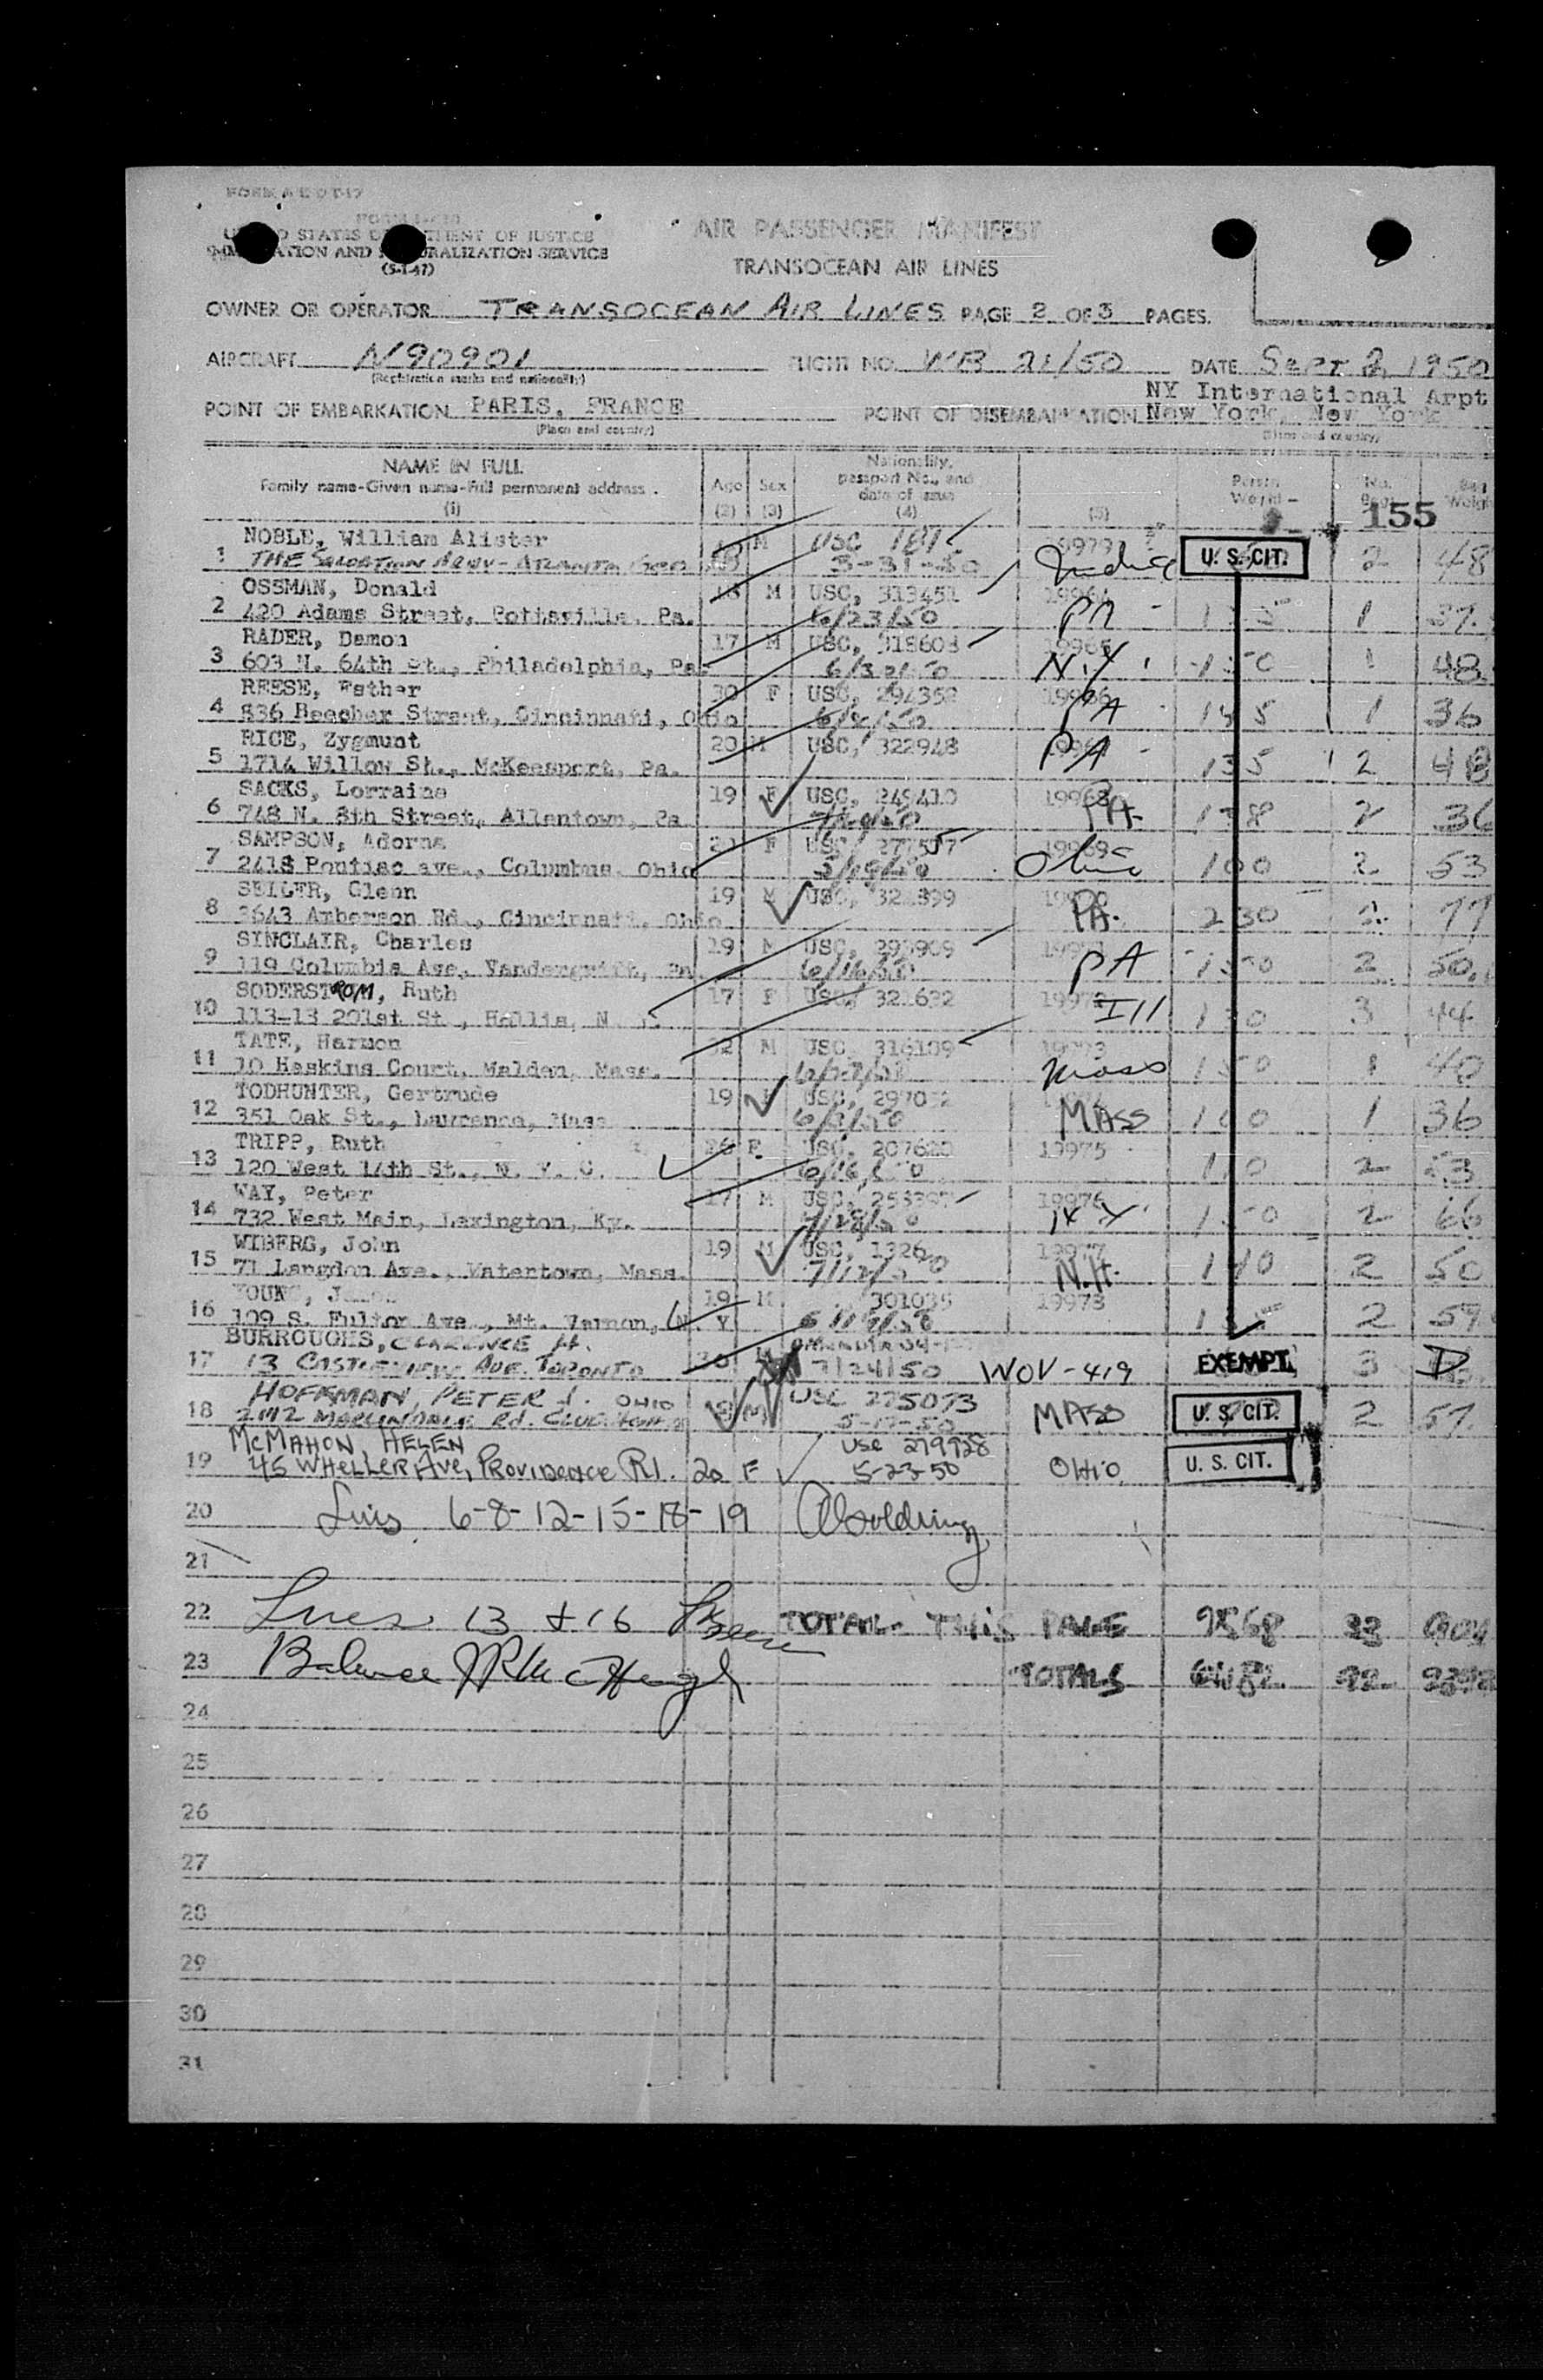 FORM
UNITED STATES DEPARTMENT OF JUSTICE
IMMIGRATION AND NATURALIZATION SERVICE
(5-1-47)
AIR PASSENGER MANIFEST
TRANSOCEAN AIR LINES
OWNER OR OPERATOR TRANSOCEAN AIR LINES PAGE 2 OF 3 PAGES.
AIRCRAFT N90901 FLIGHT NO. WB 21/50 DATE Sept 2, 1950
(Registration marks and nationality)
POINT OF EMBARKATION PARIS, FRANCE POINT OF DISEMBARKATION NY International Arpt
New York, New York
(Place and country) (Place and country)
NAME IN FULL
Family name-Given name-Full permanent address.
(1)
Age (2) Sex (3)
Nationality, passport No., and date of issue
(4)
(5)
Person Weight
No. Bags
Bag Weight
155
NOBLE, William Alister M USC 181 19979
1 THE SALVATION ARMY - ATLANTA 3-31-50 India U. S. CIT. 2 48
OSSMAN, Donald 18 M USC, 313451 19964
2 420 Adams Street, Pottsville, Pa. 6/23/50 PA 1 37
RADER, Damon 17 M USC, 318608 19965
3 603 N. 64th St., Philadelphia, Pa. 6/30/50 N.Y. 1 48
REESE, Esther 30 F USC, 294352 19966
4 836 Beecher Street, Cincinnati, Ohio PA 1 36
RICE, Zygmunt 20 M USC, 322948
5 1714 Willow St., McKeesport, Pa. PA 135 2 48
SACKS, Lorraine 19 F USC, 249410 19968
6 748 N. 8th Street, Allentown, Pa PA. 138 2 36
SAMPSON, Adorna F USC, 19969
7 2418 Pontiac ave., Columbus, Ohio 5/19/50 Ohio 100 2 53
SEILER, Glenn 19 M USC, 321899 19970
8 3643 Amberson Rd., Cincinnati, Ohio PA. 230 77
SINCLAIR, Charles 19 M USC, 293909 19971
9 119 Columbia Ave., Vandergrift, Pa. 6/16/50 PA 2 50
SODERSTROM, Ruth 17 F USC, 321632 19972
10 113-13 201st St., Hollis, N. Y. Ill 3 44
TATE, Harmon 32 M USC, 316109 19973
11 10 Haskins Court, Malden, Mass. Mass 150 1 40
TODHUNTER, Gertrude 19 F USC, 297052
12 351 Oak St., Lawrence, Mass 6/2/50 MASS 1 36
TRIPP, Ruth 26 F. USC, 207620 19975
13 120 West 14th St., N. Y. C. 6/16/50 2
WAY, Peter 17 M USC, 19976
14 732 West Main, Lexington, Ky. 7/28/50 2 66
WIBERG, John 19 M USC, 1326 19977
15 71 Langdon Ave., Watertown, Mass. 7/12/50 N.H. 140 2 50
YOUNG, 19 M. 301035 19978
16 109 S. Fulton Ave., Mt. Vernon, N. Y. 2 59
BURROUGHS, CLARENCE H.
17 13 CASTLEVIEW AVE TORONTO 7/24/50 WOV-419 EXEMPT. 3 D
HOFFMAN, PETER J. OHIO USC 225073
18 RD. 5-17-50 MASS U. S. CIT. 2 57
McMAHON, HELEN USC 279928
19 45 WHELLER Ave, PROVIDENCE R.I. 20 F 5-23-50 OHIO U. S. CIT.
20 Lines 6-8-12-15-18-19 AGoldring
21
22 Lines 13 & 16 TOTAL THIS PAGE
23 Balance JR McHugh TOTALS
24
25
26
27
28
29
30
31